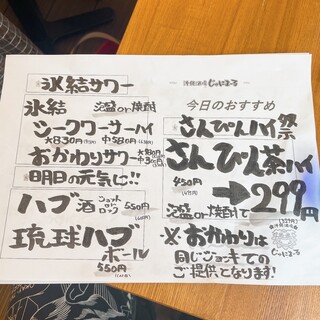 氷結サワー
氷結 泡盛or焼酎
シークワーサーハイ
大830円 中580円
おかわりサワー 大780円
明日の元気に!!
ハブ酒 ショット or ロック 550円
琉球ハブ
ボール
550円
沖縄酒場 じゅにまーる
今日のおすすめ
さんぴんハイ祭
さんぴん茶ハイ
450円 → 299円
泡盛or焼酎で
※おかわりは
同じジョッキでの
ご提供となります!